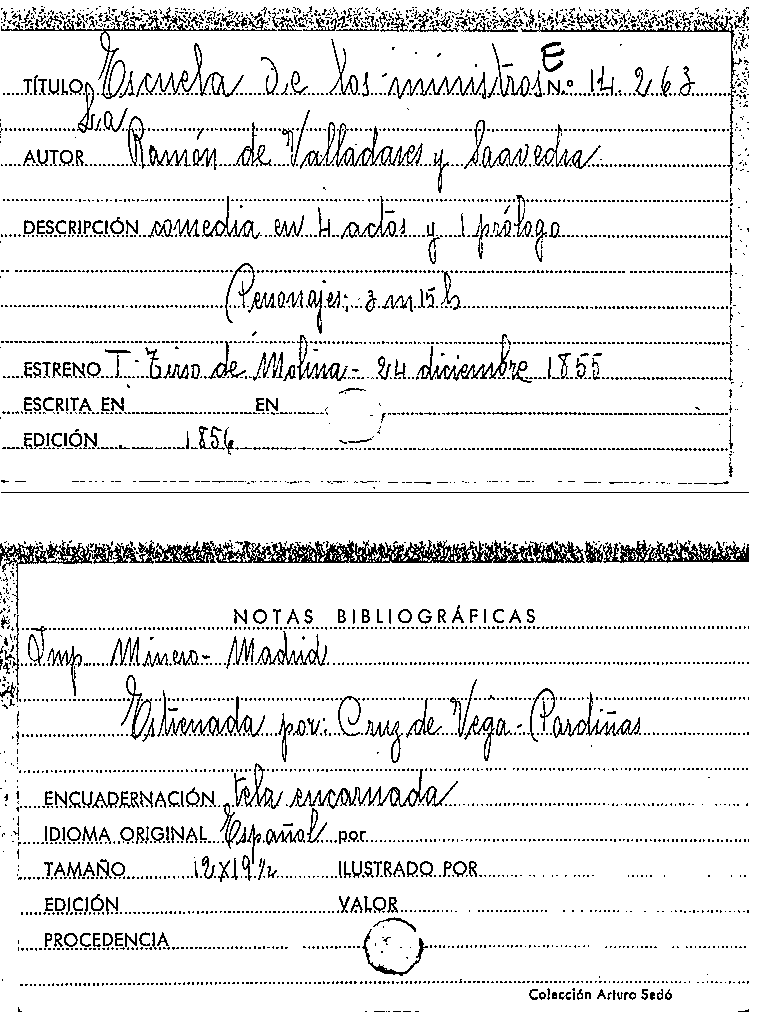 E
TÍTULO Escuela de los ministros N.º 14.263
La
AUTOR Ramón de Valladares y Saavedra
DESCRIPCIÓN comedia en 4 actos y 1 prólogo
Personajes: 3 m 15 h
ESTRENO T. Tirso de Molina - 24 diciembre 1855
ESCRITA EN EN
EDICIÓN 1856
NOTAS BIBLIOGRÁFICAS
Imp. Minero - Madrid
Estrenada por: Cruz de Vega - Pardiñas
ENCUADERNACIÓN tela encarnada
IDIOMA ORIGINAL Español por
TAMAÑO 12x19½ ILUSTRADO POR
EDICIÓN VALOR
PROCEDENCIA
Colección Arturo Sedó